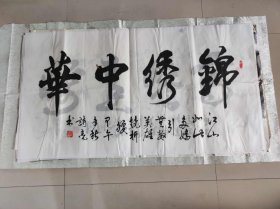 錦綉中華
江山如此
多嬌
引
無數
英雄
競折
腰
甲午
年秋